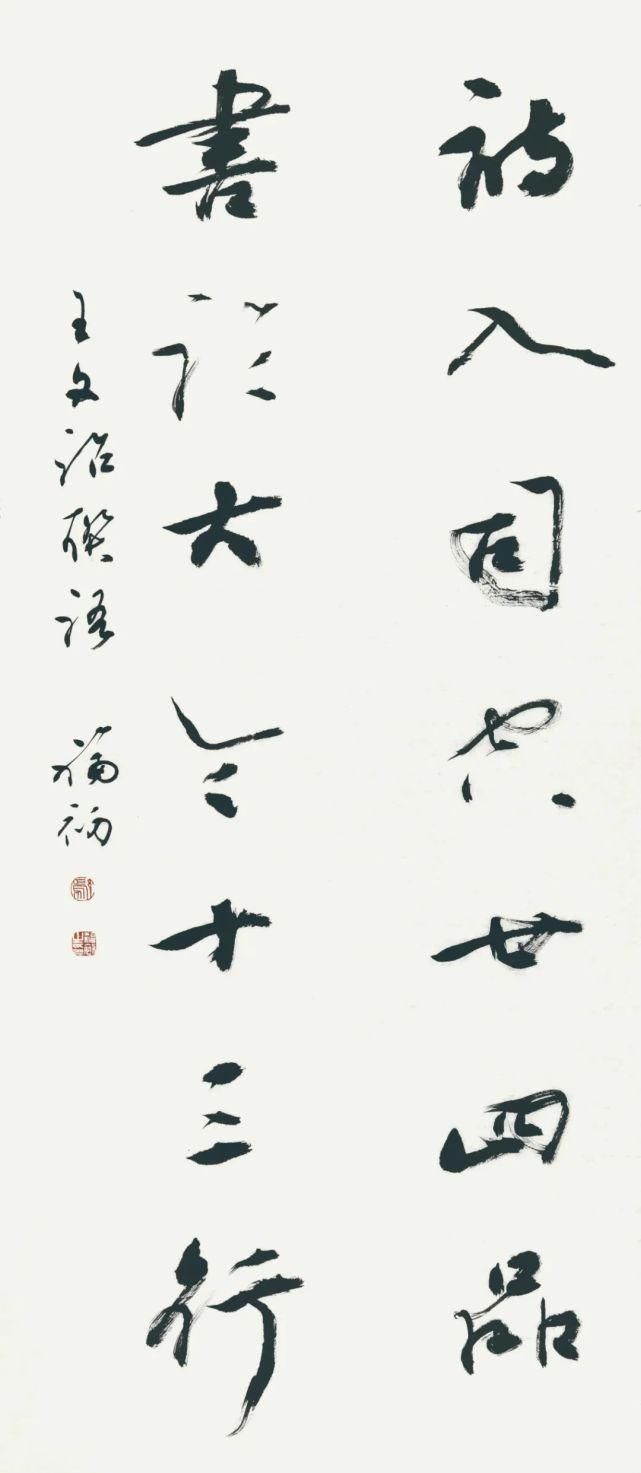 詩入司空廿四品
書臨大令十三行
王文治聯語 福初